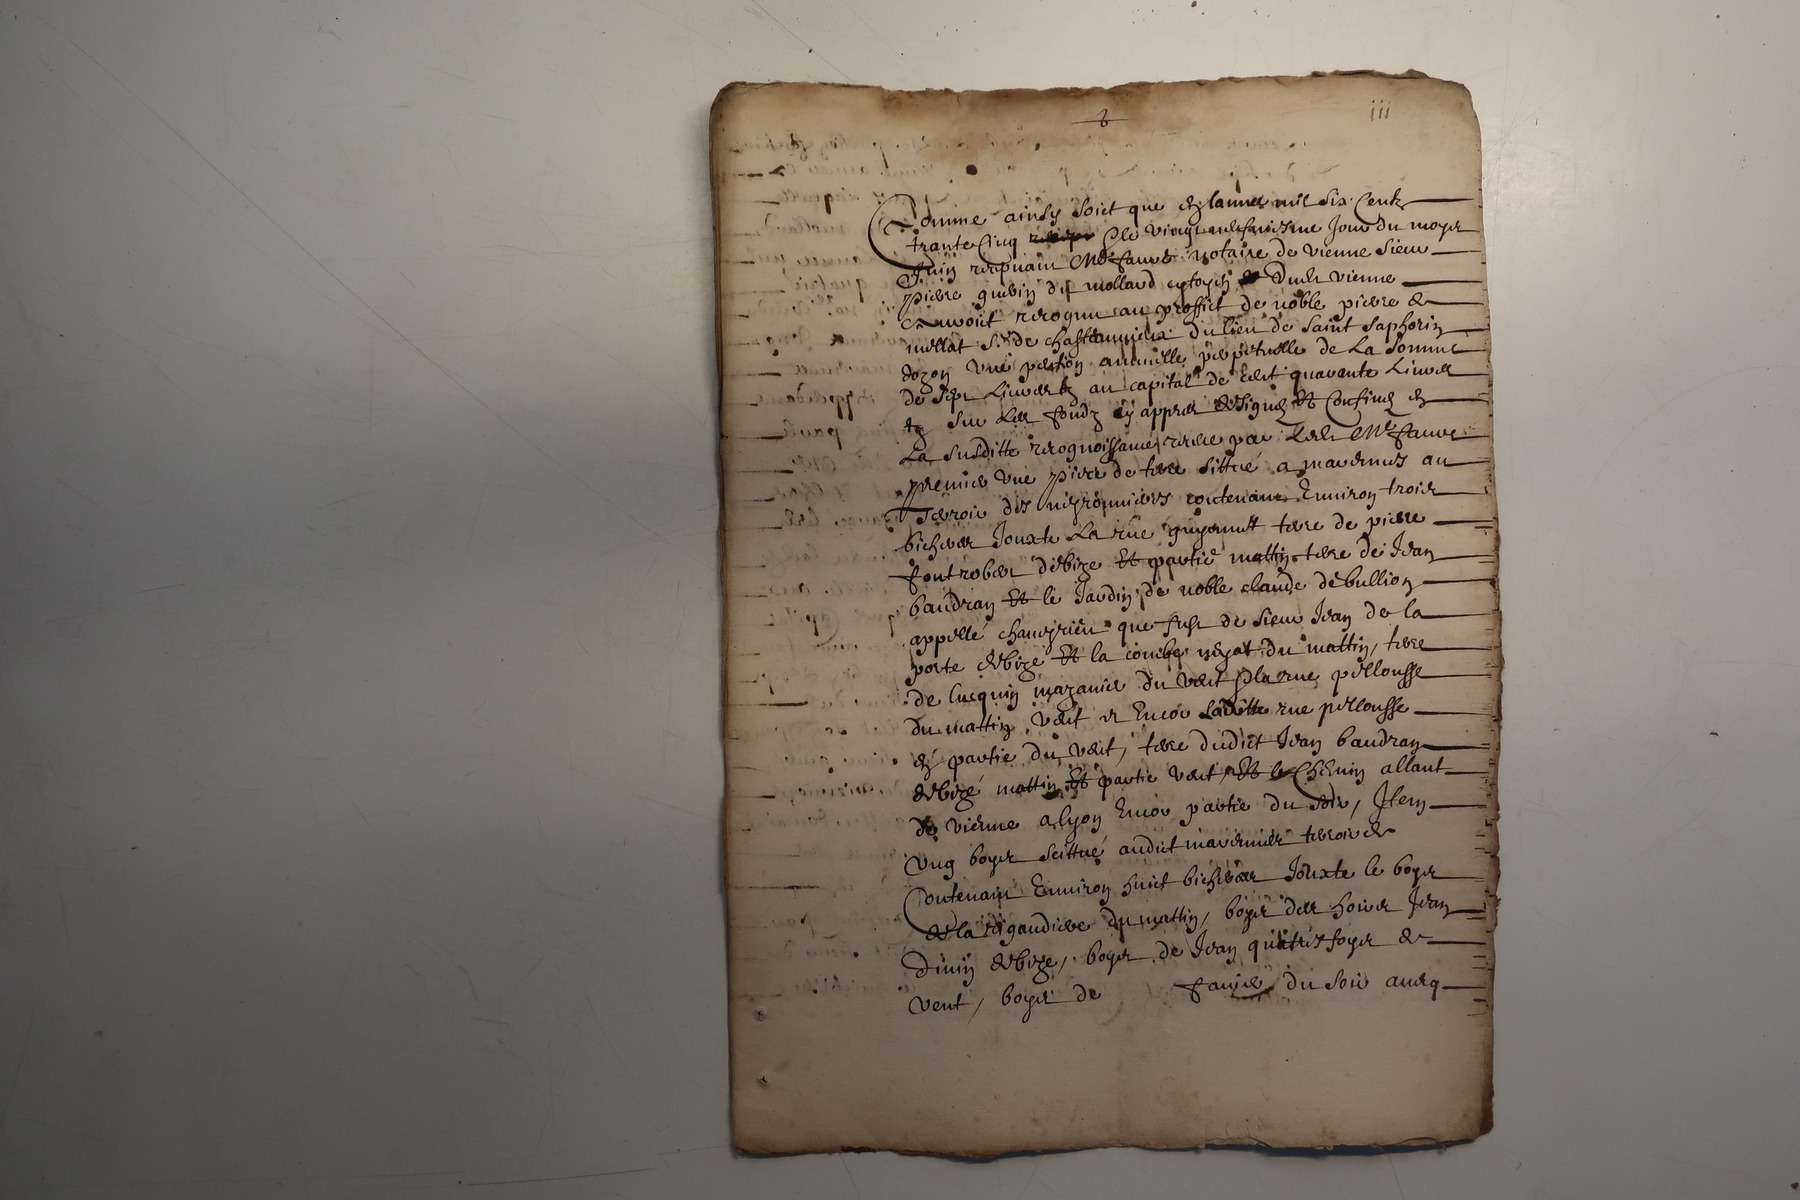 iii
Comme ainsy soict que en lannee mil six Centz
trante Cinq le vingt Jour du moys
Juin recepuant Me faure notaire de vienne sieur
pierre guerin du mollard cytoyen Dudt vienne
avoict recognu au proffict de noble pierre de
mellat Sr de chastaunieu du lieu de Saint Saphorin
dozon une pention annuelle perpetuelle de La Somme
de Sept Livres tz au capital de cent quarante Livres
tz sur Les fondz cy appres designes Et Confines en
La susditte recognoissance receue par Ledt Me faure
premier une piece de terre sittué a mavernes au
Terroir des neyronnieres contenant Environ trois
bicheres Jouxte La rue guyonnett terre de pierre
fontrobert debize Et partie mattin terre de Jean
baudran Et le Jardin de noble claude de bullion
appellé chaneyrieu que fust de sieur Jean de la
porte debize Et la combe du mattin, terre
de lucquin mazanier du vent la rue pellousse
du mattin vent et Encor laditte rue pellousse
en partie du vent, terre dudict Jean baudran
debize mattin Et partie vent, Et le Chemin allant
de vienne a lyon Encor partie du soir, Item
Ung boys scittué audict mavernier terroir de
Contenant Environ huict bicheres Jouxte le boys
de la rigaudiere du mattin, boys des hoirs Jean
Divin debize, boys de Jean quatrefoys de
vent, boys de faure du soir avecq